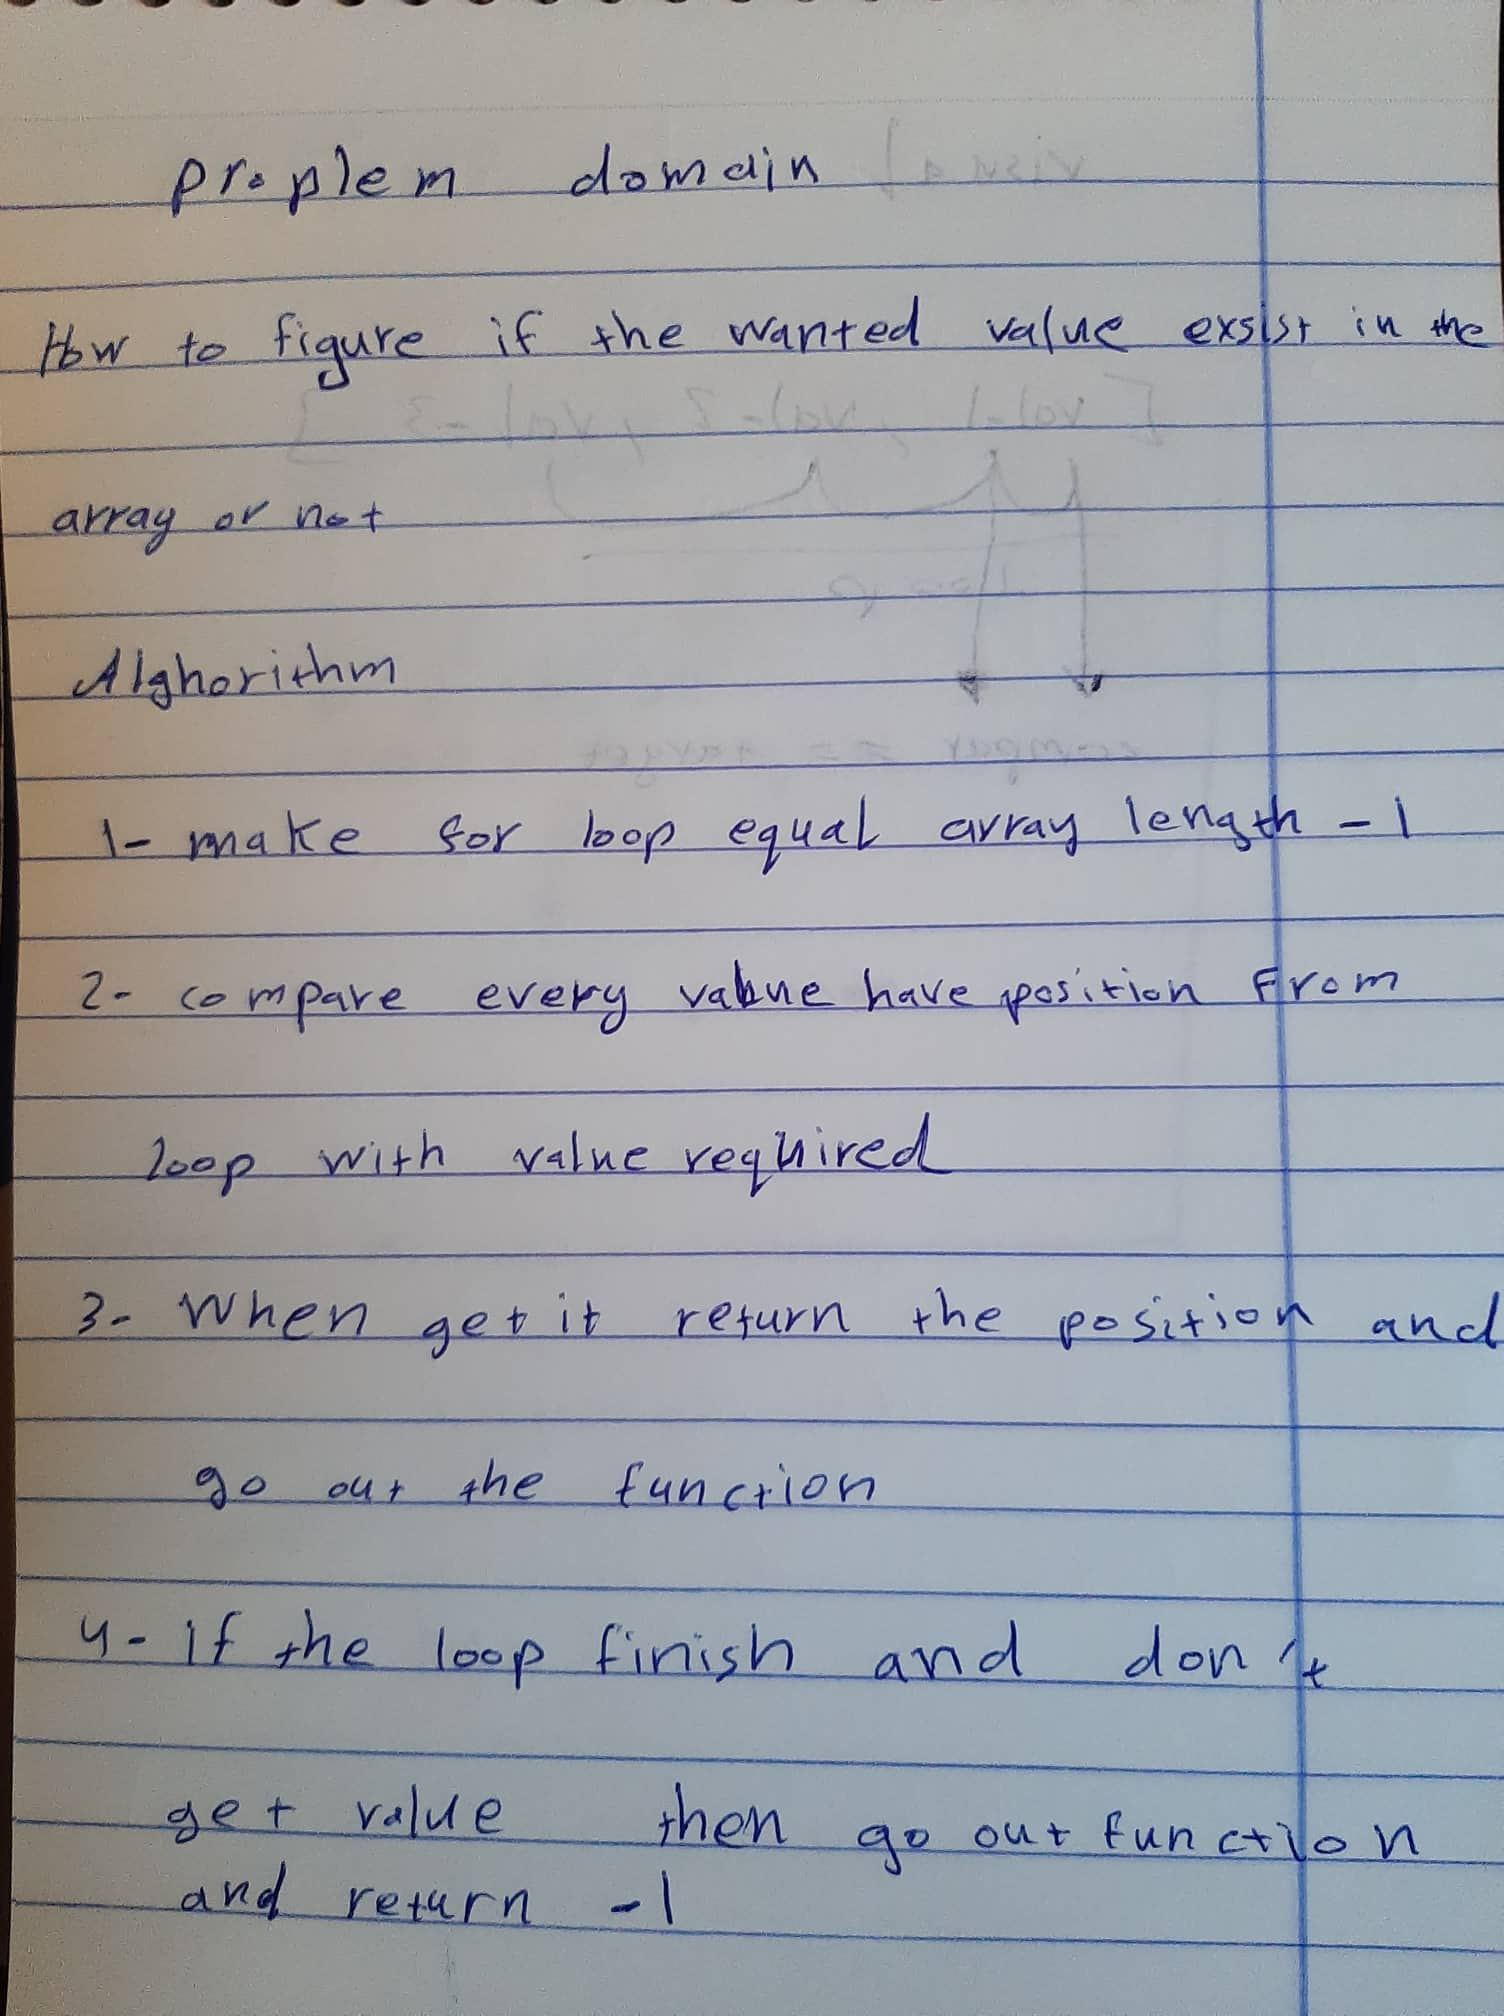 proplem domain
How to figure if the wanted value exsist in the
array or not
Alghorithm
1- make for loop equal array length - 1
2- compare every value have position From
loop with value required
3- When get it return the position and
go out the function
4- if the loop finish and don't
get value then go out function
and return -1